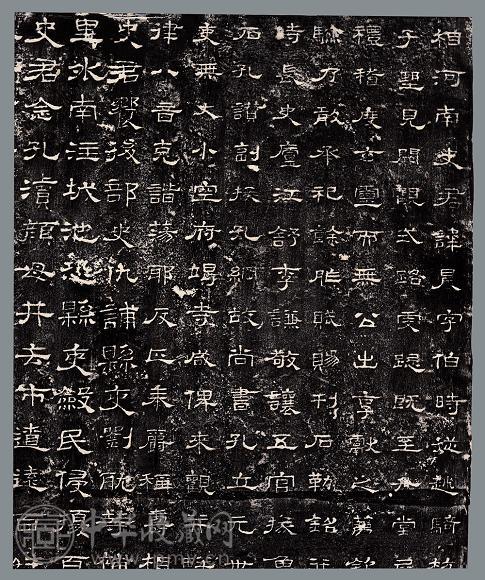 相河南史君諱晨字伯時從越騎校
子望見闕觀式路虔跽既至升堂屏
禮稽度玄靈而無公出享獻之薦欽
驗乃敢承祀餘胙賦賜刊石勒銘并
時長史廬江舒李謙敬讓五官掾魯
石孔讚副掾孔綱故尚書孔立元世
吏無大小空府竭寺咸俾來觀并畔
律八音克諧蕩耶反正奉爵稱壽相
史君饗後部史仇誧縣吏劉耽等補
里外南注城池恐縣吏斂民侵擾百
史君念孔瀆顏母井去市遼遠百姓
中华收藏网